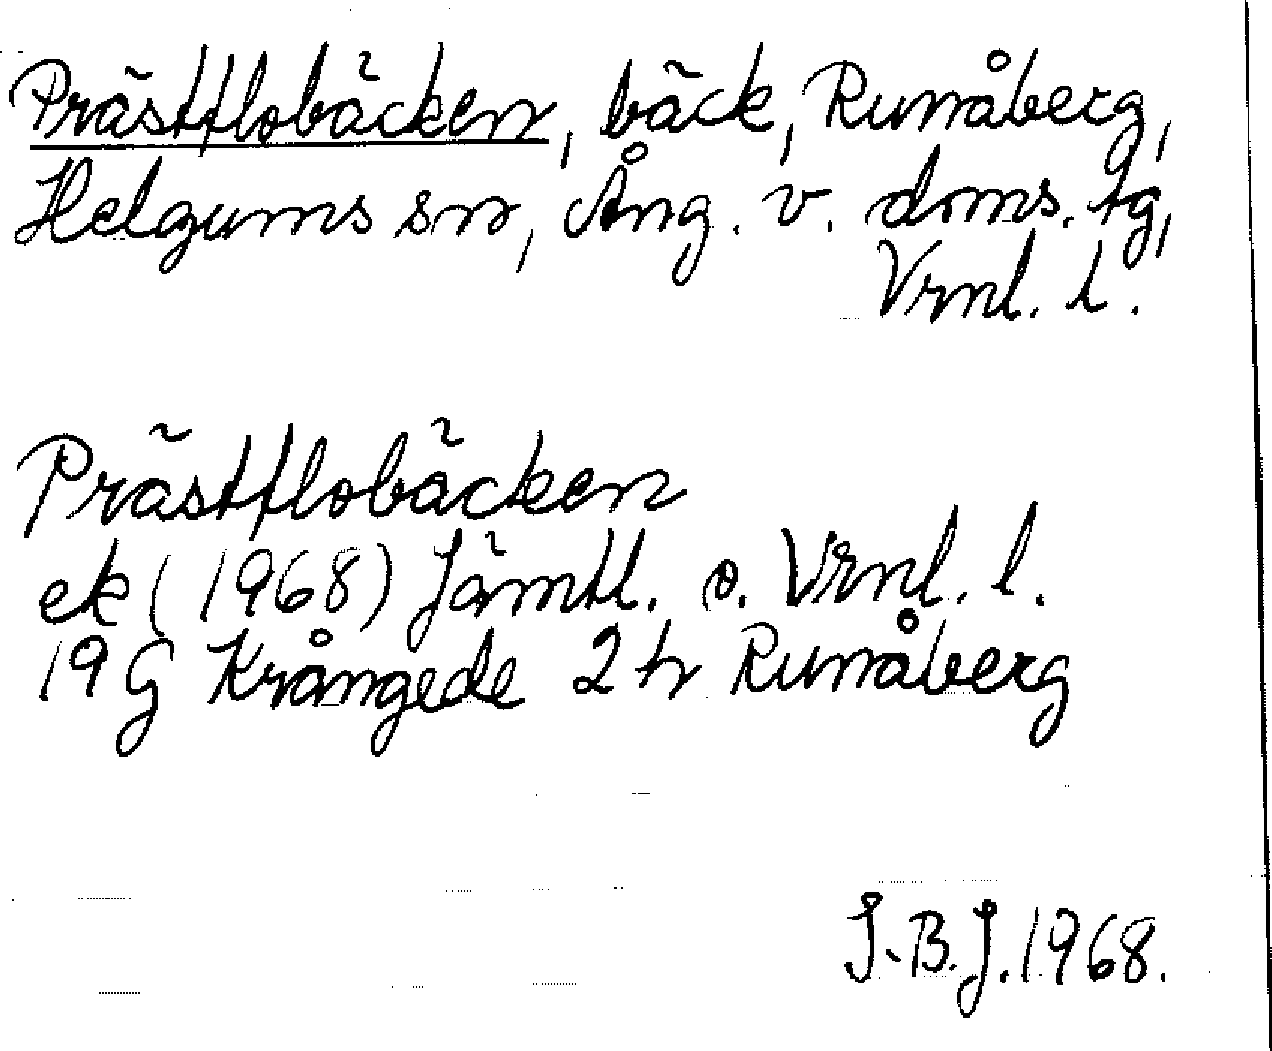 Prästflobäcken, bäck, Runåberg,
Helgums sn, Ång. v. doms. tg,
Vrnl. l.
Prästflobäcken
ek (1968) Jämtl. o. Vrnl. l.
19 G Krångede 2 h Runåberg
I.B.J. 1968.